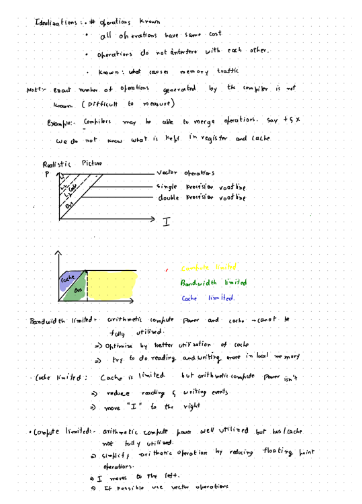 Idealizations: • # operations known
• all operations have same cost
• operations do not interfere with each other.
• known: what causes memory traffic
Note:- exact number of operations generated by the compiler is not
known (Difficult to measure)
Example:- Compilers may be able to merge operation. say + & x
We do not know what is kept in register and cache
Realistic Picture
P
Vector operations
Single Precision roofline
double precision roofline
I
Compute limited
Bandwidth limited
Cache limited.
Cache
Bandwidth limited:- arithmetic compute power and cache cannot be
fully utilized.
=> Optimise by better utilisation of cache
=> try to do reading and writing more in local memory
• Cache limited: Cache is limited but arithmetic compute power isn't
=> reduce reading & writing events
=> move "I" to the right
• Compute limited:- arithmetic compute power well utilized but bus/cache
not fully utilized.
=> simplify arithmetic operation by reducing floating point
operations.
=> I moves to the left.
=> If possible use vector operations